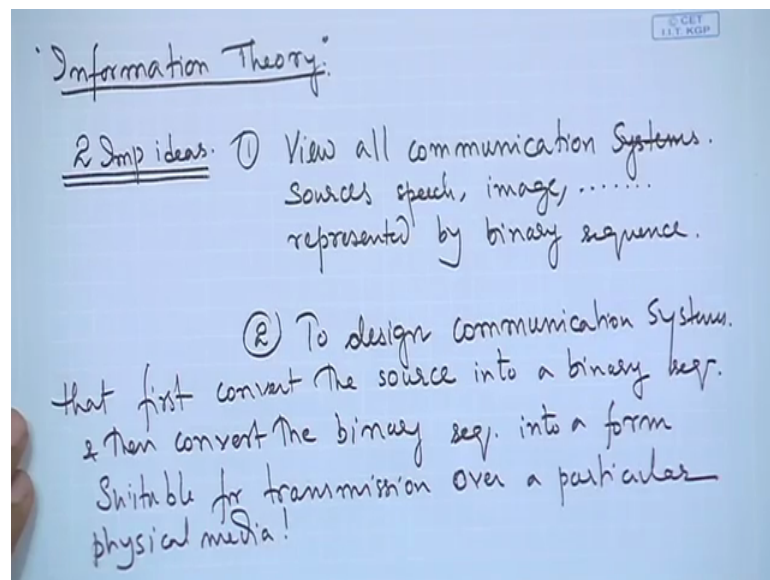 © CET
I.I.T. KGP
"Information Theory":
2 Imp ideas. ① View all communication Systems.
Sources speech, image, ........
represented by binary sequence.
② To design communication Systems.
that first convert the source into a binary seq.
& then convert the binary seq. into a form
Suitable for transmission over a particular
physical media!